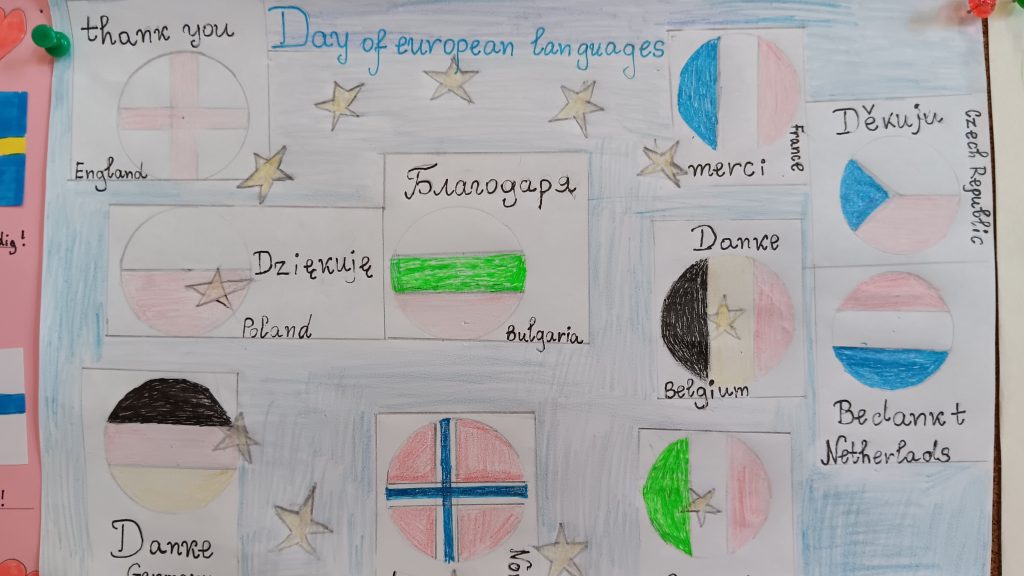 thank you
England
Day of european languages
merci
France
Děkuju
Czech Republic
Dziękuję
Poland
Благодаря
Bulgaria
Danke
Belgium
Bedankt
Netherlads
Danke